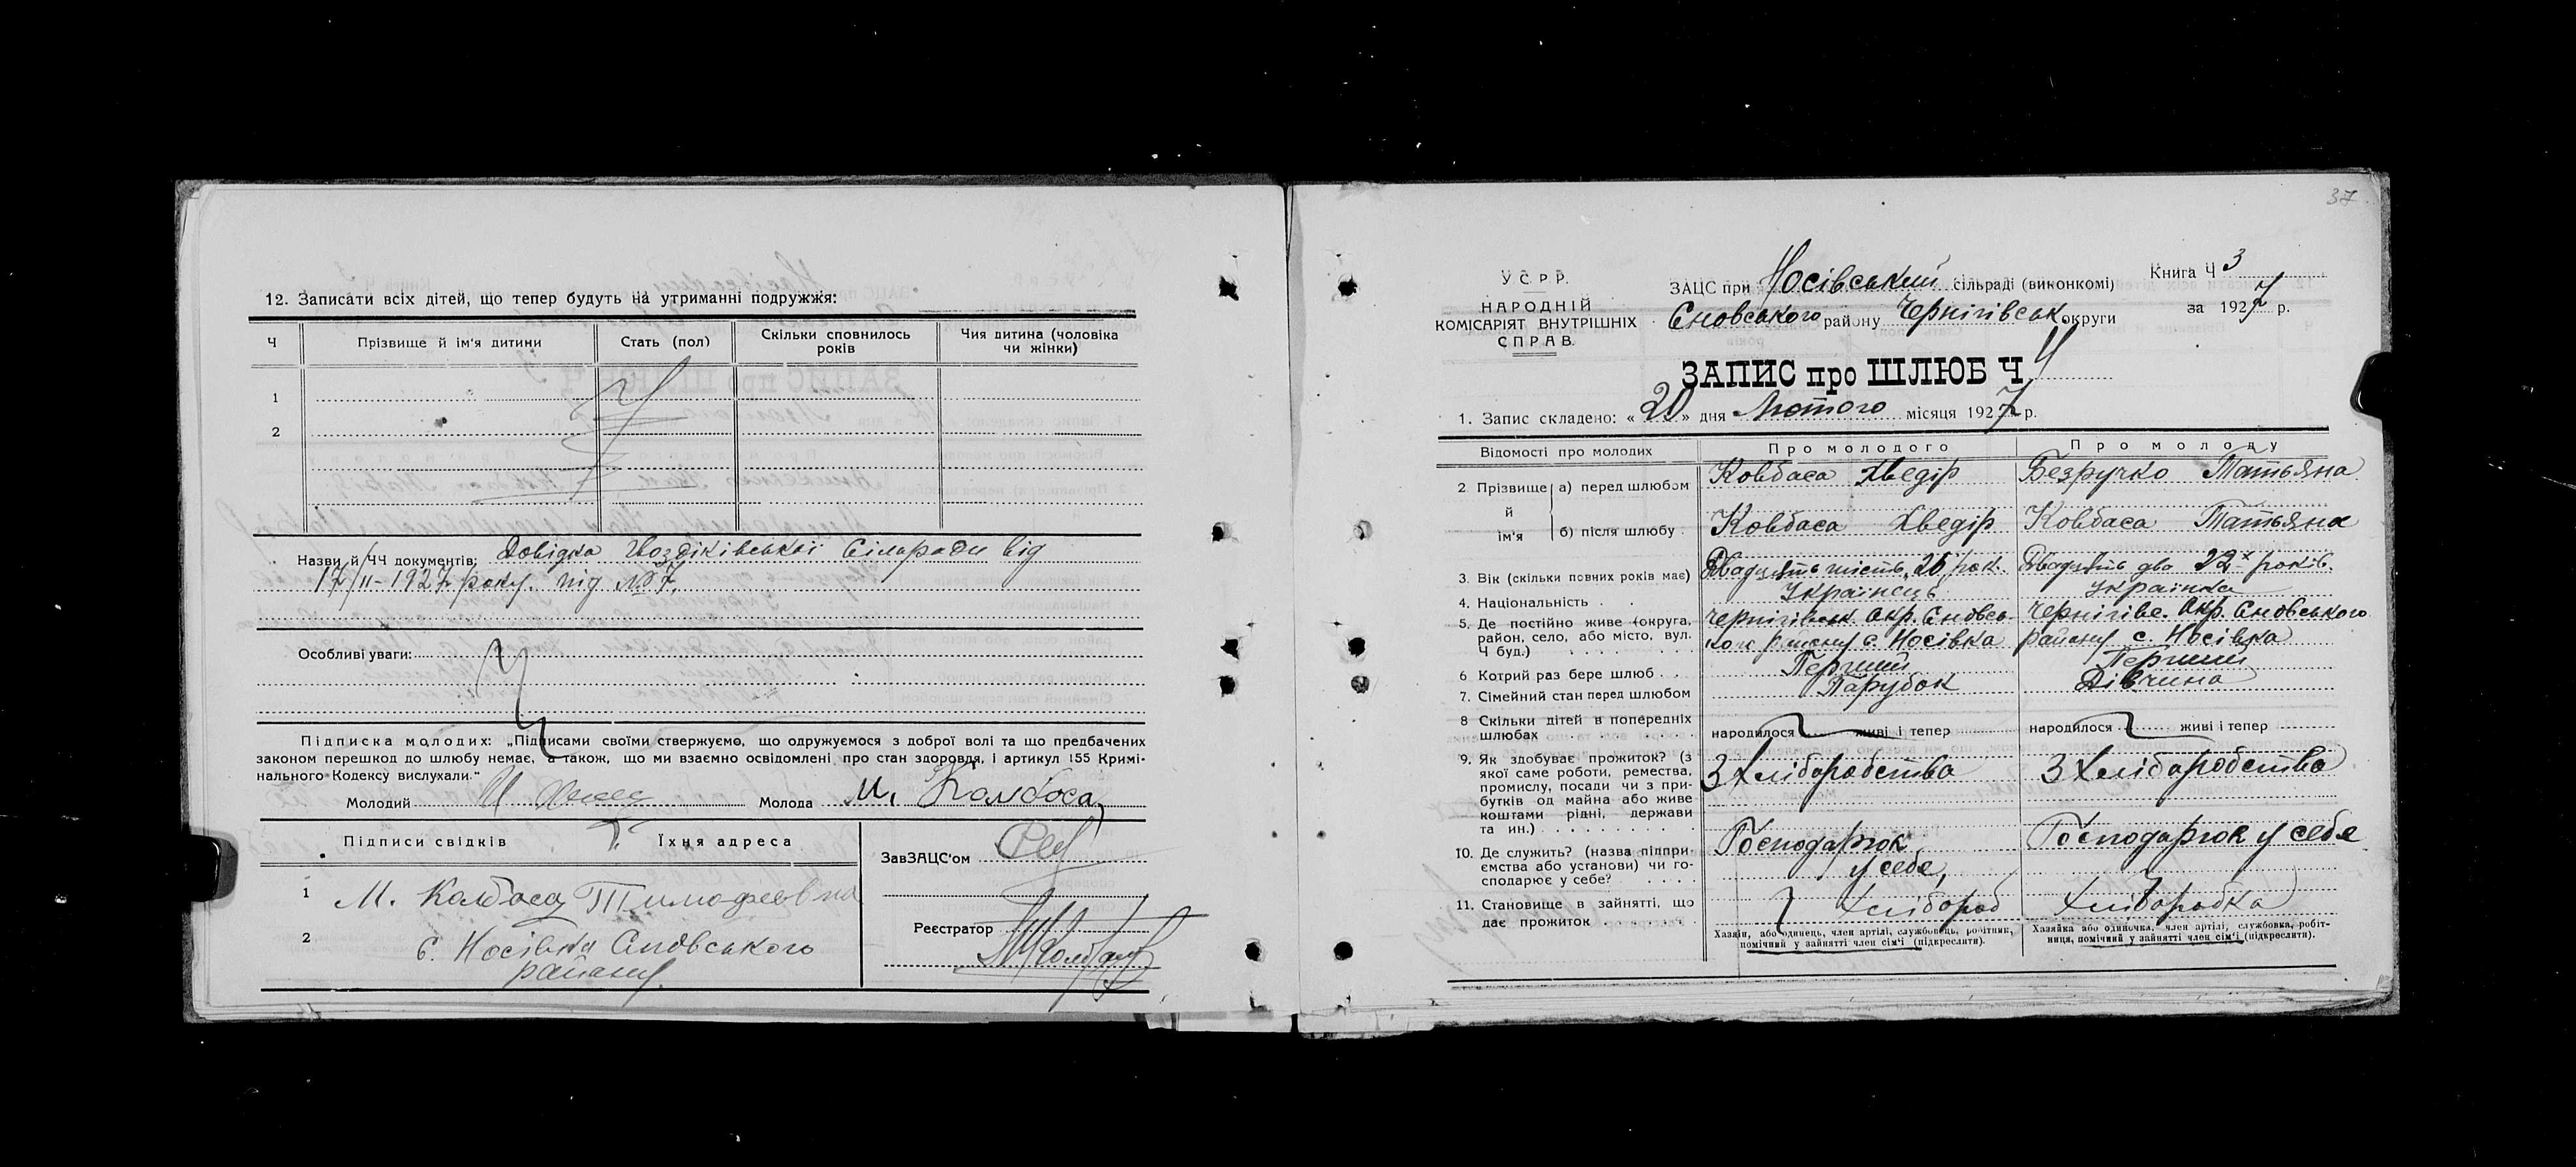 12. Записати всіх дітей, що тепер будуть на утриманні подружжя:
Ч Прізвище й ім'я дитини Стать (пол) Скільки сповнилось років Чия дитина (чоловіка чи жінки)
1
2
Назви й ЧЧ документів: Довідка Гвоздіківської Сільради від
17/II-1927 року. під № 7.
Особливі уваги:
Підписка молодих: „Підписами своїми стверджуємо, що одружуємося з доброї волі та що предбачених
законом перешкод до шлюбу немає, а також, що ми взаємно освідомлені про стан здоровля, і артикул 155 Кримі-
нального Кодексу вислухали."
Молодий Молода М. Колбоса
Підписи свідків Їхня адреса
ЗавЗАЦС'ом
1 М. Колбаса Тимофеевна
Реєстратор
2 с. Носівка Сновського
району.
37
У С Р Р.
НАРОДНІЙ
КОМІСАРІЯТ ВНУТРІШНІХ
СПРАВ.
ЗАЦС при Носівський сільраді (виконкомі)
Книга Ч 3
Сновського району Чернігівськ округи
за 1927 р.
ЗАПИС про ШЛЮБ Ч 4
1. Запис складено: «20» дня Лютого місяця 1927 р.
Відомості про молодих Про молодого Про молоду
2 Прізвище й ім'я а) перед шлюбом Ковбаса Хведір Безручко Татьяна
б) після шлюбу Ковбаса Хведір Ковбаса Татьяна
3. Вік (скільки повних років має) Двадцять шість, 26 рок. Двадцять два 22х років.
4. Національність Українець Українка
5. Де постійно живе (округа, район, село, або місто, вул. Ч буд.) Чернігівськ. Окр. Сновсь- району с. Носівка Чернігівс. Окр. Сновського району с. Носівка
6 Котрий раз бере шлюб Перший Перший
7. Сімейний стан перед шлюбом Парубок Дівчина
8 Скільки дітей в попередніх шлюбах народилося живі і тепер народилося живі і тепер
9. Як здобуває прожиток? (з якої саме роботи, ремества, промислу, посади чи з при-бутків од майна або живе коштами рідні, держави та ин.) З Хліборобства З Хліборобства
10. Де служить? (назва підпри-ємства або установи) чи го-сподарює у себе? Господарюк у себе, Господарюк у себе
11. Становище в зайнятті, що дає прожиток Хлібороб Хліборобка
Хазяїн, або одинець, член артілі, службовець, робітник, помічний у зайнятті член сім'ї (підкреслити).
Хазяйка або одиночка, член артілі, службовка, робіт-ниця, помічний у зайнятті член сім'ї (підкреслити).